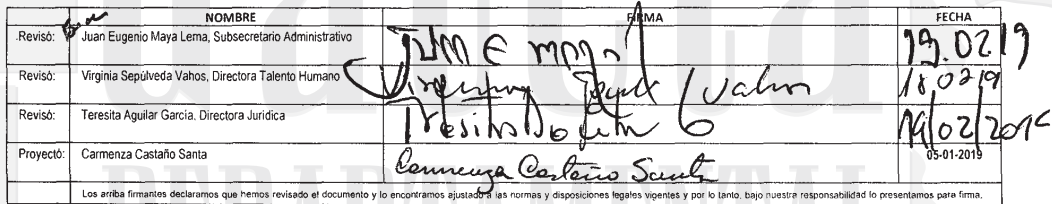 NOMBRE FIRMA FECHA
Revisó: Juan Eugenio Maya Lema, Subsecretario Administrativo 19.02.19
Revisó: Virginia Sepúlveda Vahos, Directora Talento Humano 18.02.19
Revisó: Teresita Aguilar García. Directora Jurídica 19/02/2019
Proyectó: Carmenza Castaño Santa Carmenza Castaño Santa 05-01-2019
Los arriba firmantes declaramos que hemos revisado el documento y lo encontramos ajustado a las normas y disposiciones legales vigentes y por lo tanto, bajo nuestra responsabilidad lo presentamos para firma.